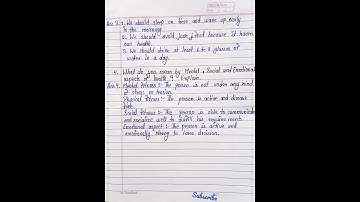 Ans 3. 1. We should sleep on time and wake up early
in the morning.
2. We should avoid junk food because it harms
our health.
3. We should drink at least 6 to 8 glasses of
water in a day.
4. What do you mean by Mental, Social and Emotional
aspects of health? Explain.
Ans 4. Mental fitness :- The person is not under any kind
of stress or tension.
Physical fitness :- The person is active and disease
free.
Social fitness :- The person is able to communicate
and socialise well to fulfill his requirement.
Emotional aspect :- The person is active and
emotionally strong to take decision.
Subscribe